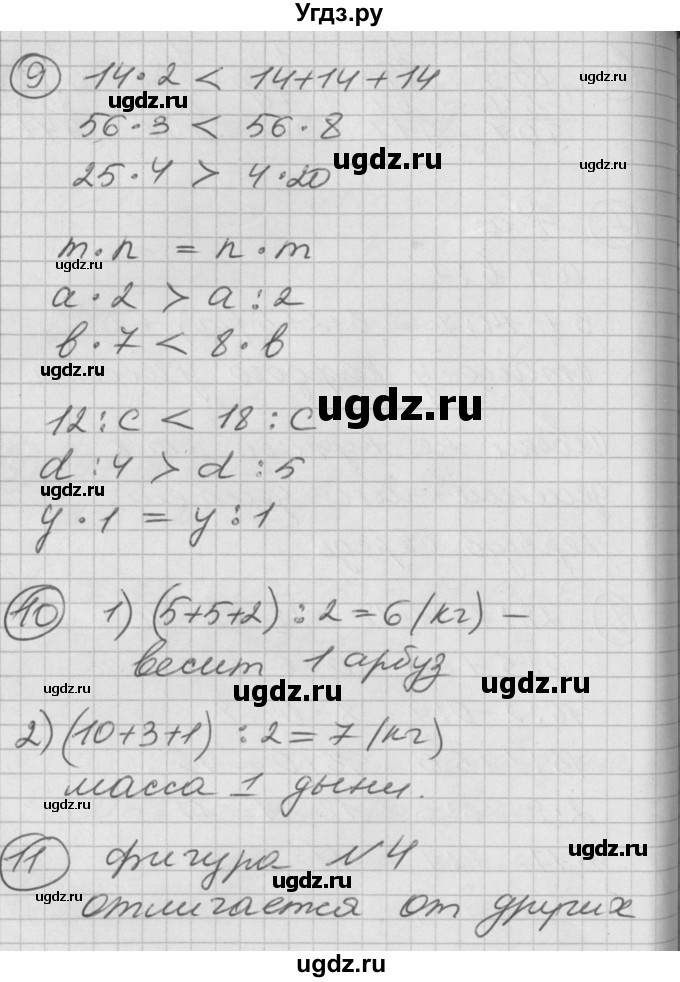 Угдз.ру
9 14·2 < 14+14+14
ugdz.ru
ugdz.ru
56·3 < 56·8
ugdz.ru
ugdz.ru
25·4 > 4·20
m·n = n·m
ugdz.ru
a·2 > a:2
в·7 < 8·в
ugdz.ru
ugdz.ru
12:c < 18:c
d:4 > d:5
ugdz.ru
y·1 = y:1
10 1) (5+5+2):2=6(кг) –
весит 1 арбуз
ugdz.ru
ugdz.ru
ugdz.ru
2) (10+3+1):2=7(кг)
масса 1 дыни.
ugdz.ru
11 фигура №4
ugdz.ru
ugdz.ru
ugdz.ru
отличается от других
ugdz.ru